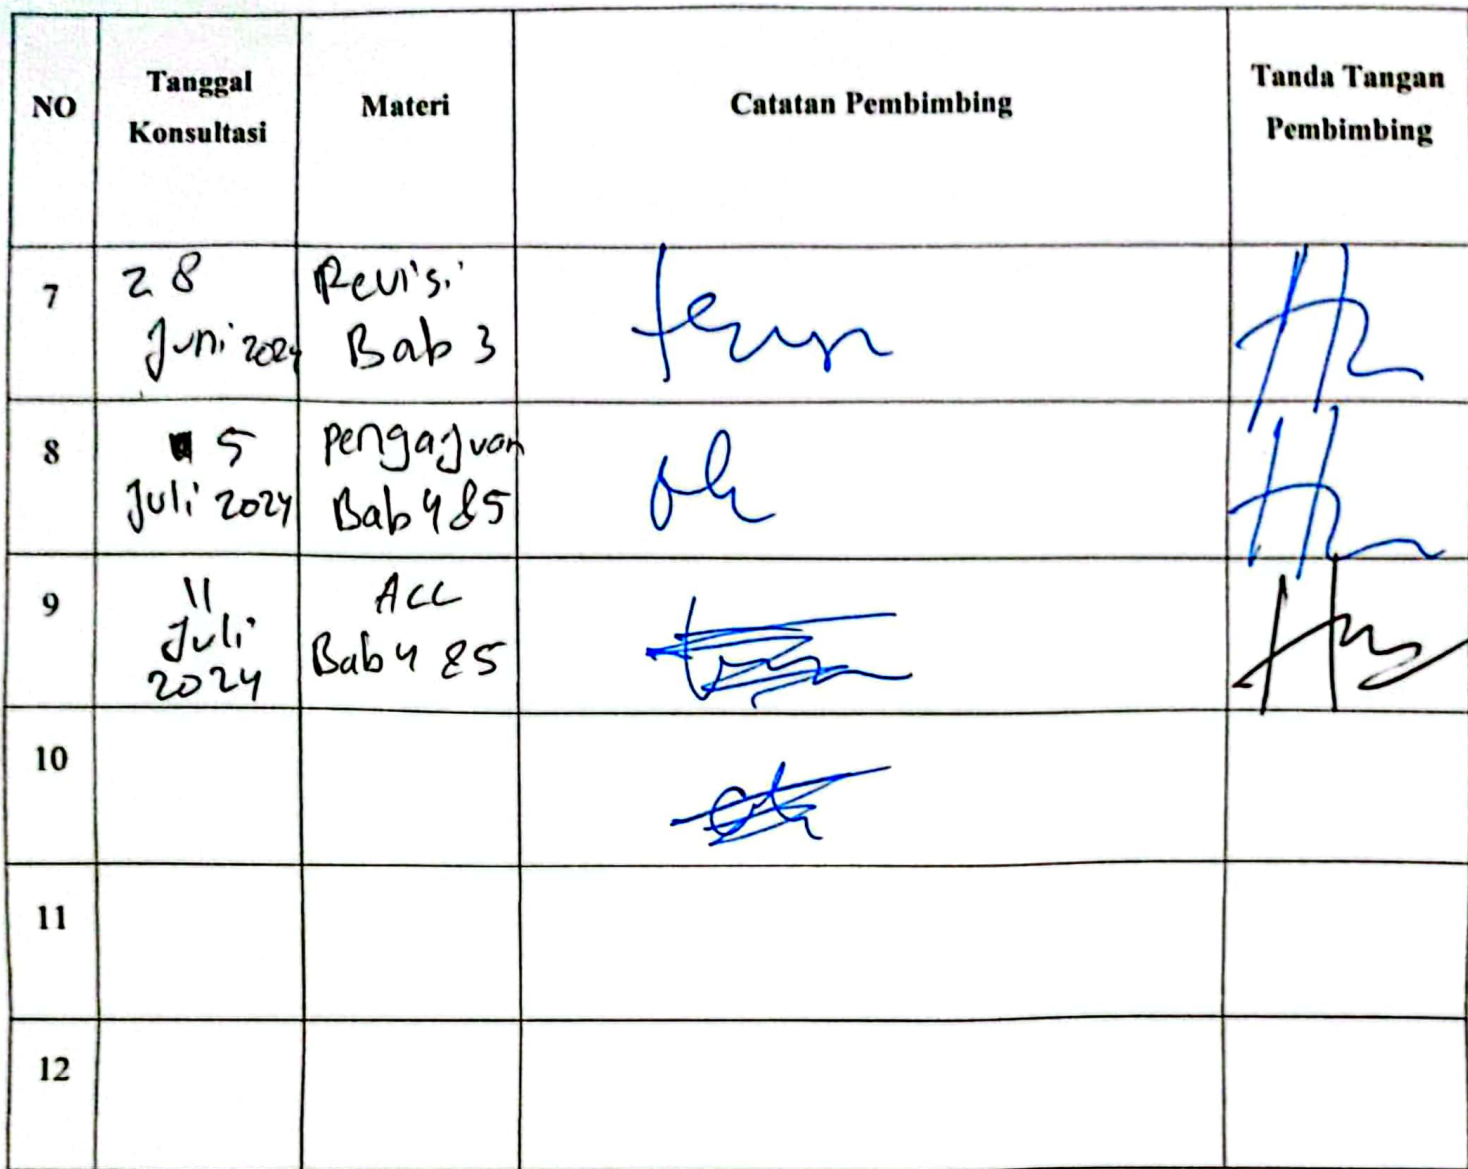 NO
Tanggal
Konsultasi
Materi
Catatan Pembimbing
Tanda Tangan
Pembimbing
7
28
Juni 2024
Revisi
Bab 3
8
5
Juli 2024
Pengajuan
Bab 4 & 5
ok
9
11
Juli
2024
ACC
Bab 4 & 5
10
11
12